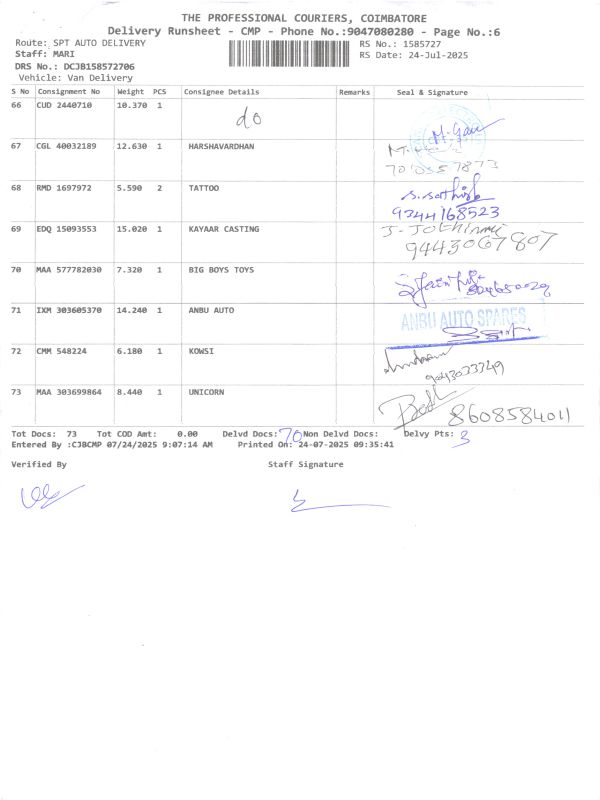 THE PROFESSIONAL COURIERS, COIMBATORE
Delivery Runsheet - CMP - Phone No.:9047080280 - Page No.:6
Route: SPT AUTO DELIVERY RS No.: 1585727
Staff: MARI RS Date: 24-Jul-2025
DRS No.: DCJB158572706
Vehicle: Van Delivery
S No Consignment No Weight PCS Consignee Details Remarks Seal & Signature
66 CUD 2440710 10.370 1 do
67 CGL 40032189 12.630 1 HARSHAVARDHAN
68 RMD 1697972 5.590 2 TATTOO S. Sathish
9344168523
69 EDQ 15093553 15.020 1 KAYAAR CASTING
9443067807
70 MAA 577782030 7.320 1 BIG BOYS TOYS
71 IXM 303605370 14.240 1 ANBU AUTO ANBU AUTO SPARES
72 CMM 548224 6.180 1 KOWSI
9043033349
73 MAA 303699864 8.440 1 UNICORN
8608584011
Tot Docs: 73 Tot COD Amt: 0.00 Delvd Docs: 70 Non Delvd Docs: Delvy Pts: 3
Entered By :CJBCMP 07/24/2025 9:07:14 AM Printed On: 24-07-2025 09:35:41
Verified By Staff Signature